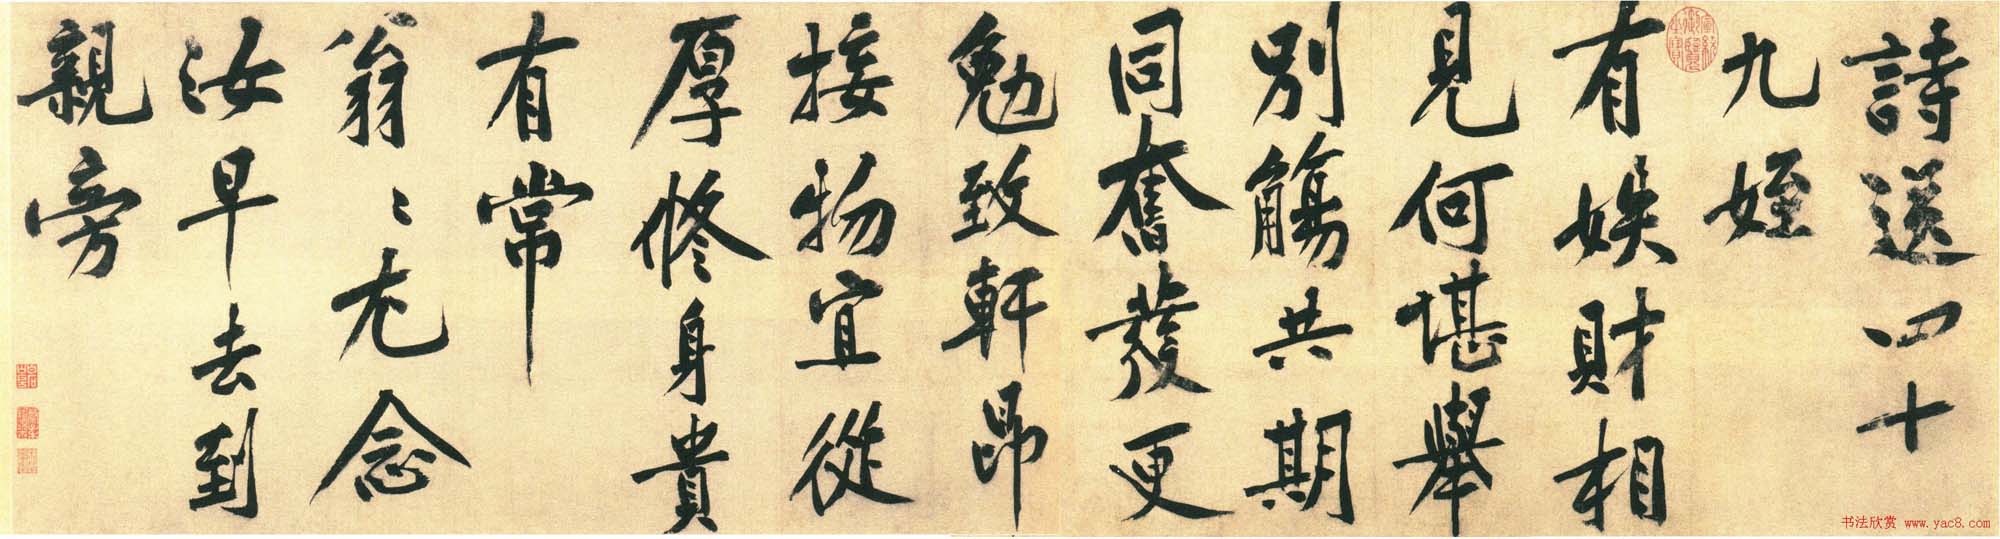 詩送四十
九姪
有娭財相
見何堪舉
別觴共期
同奮發更
勉致軒昂
接物宜從
厚修身貴
有常
翁〻尤念
汝早去到
親旁
宣統御覽之寶
书法欣赏 www.yac8.com